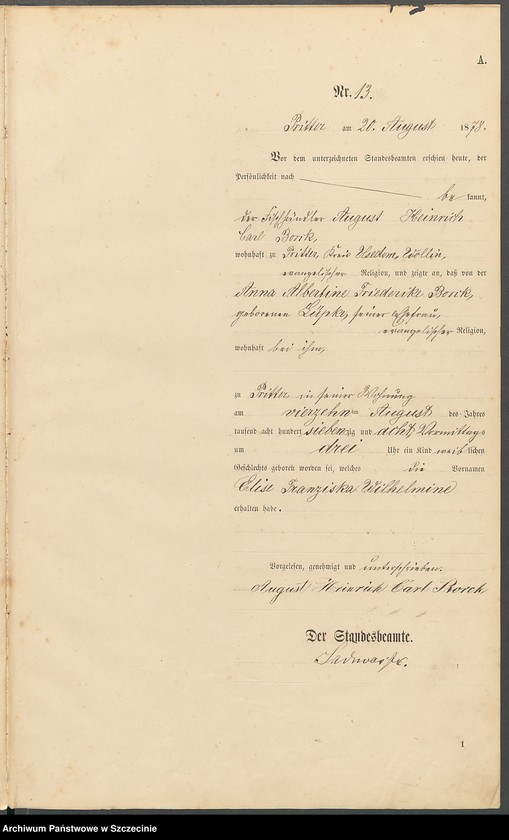 A.
Nr. 13.
Pritter am 20. August 1878.
Vor dem unterzeichneten Standesbeamten erschien heute, der
Persönlichkeit nach
bekannt,
der Fischhändler August Heinrich
Carl
wohnhaft zu Pritter, Kreis Usedom, Wollin,
evangelischer Religion, und zeigte an, daß von der
Anna Albertine Friederike
geborenen Lüpke, seiner Ehefrau,
evangelischer Religion,
wohnhaft bei ihm,
zu Pritter in seiner Wohnung
am vierzehnten August des Jahres
tausend acht hundert siebenzig und acht, Vormittags
um drei Uhr ein Kind weiblichen
Geschlechts geboren worden sei, welches die Vornamen
Elise Franziska Wilhelmine
erhalten habe.
Vorgelesen, genehmigt und unterschrieben.
August Heinrich Carl
Der Standesbeamte.
1
Archiwum Państwowe w Szczecinie